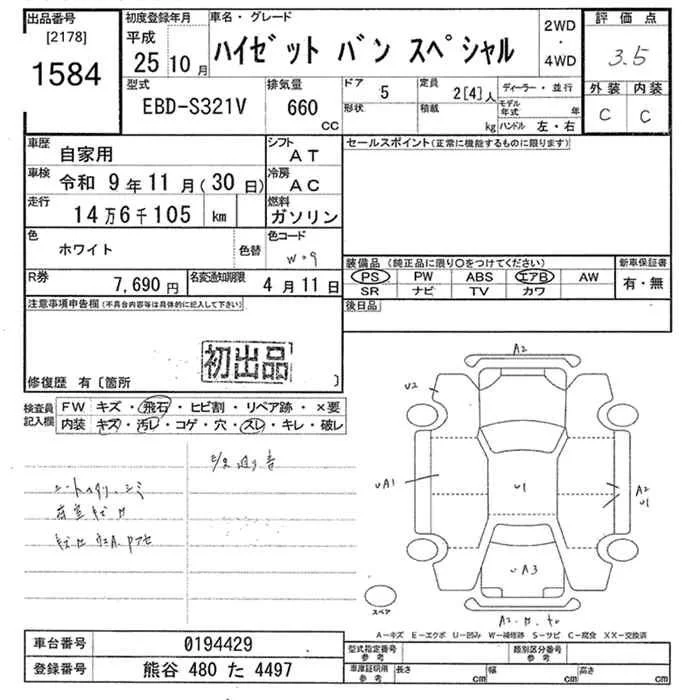 出品番号 [2178] 1584
初度登録年月 平成 25 10月
車名・グレード ハイゼット バン スペシャル
2WD・4WD
評価点 3.5
外装 C 内装 C
型式 EBD-S321V
排気量 660 CC
ドア 5 形状
定員 2[4]人 積載 kg
ディーラー・並行
モデル年式 年
ハンドル 左・右
車歴 自家用
シフト AT
セールスポイント(正常に機能するものに限ります)
車検 令和 9年11月(30日)
冷房 AC
走行 14万6千105 km
燃料 ガソリン
色 ホワイト 色替
色コード W09
装備品(純正品に限り○をつけてください)
新車保証書 有・無
PS PW ABS エアB AW
SR ナビ TV カワ
R券 7,690円
名変通知期限 4月11日
後日品
注意事項申告欄(不具合内容等は具体的に記入して下さい)
初出品
修復歴 有〔箇所 〕
検査員記入欄
FW キズ・飛石・ヒビ割・リペア跡・×要
内装 キズ・汚レ・コゲ・穴・スレ・キレ・破レ
A2
U2
UA1
U1
A2
U1
UA3
スペア
A-キズ E-エクボ U-凹み W-補修跡 S-サビ C-腐食 XX-交換済
車台番号 0194429
登録番号 熊谷 480 た 4497
型式指定番号 参考
類別区分番号 参考
車庫証明用 参考 長さ cm 幅 cm 高さ cm